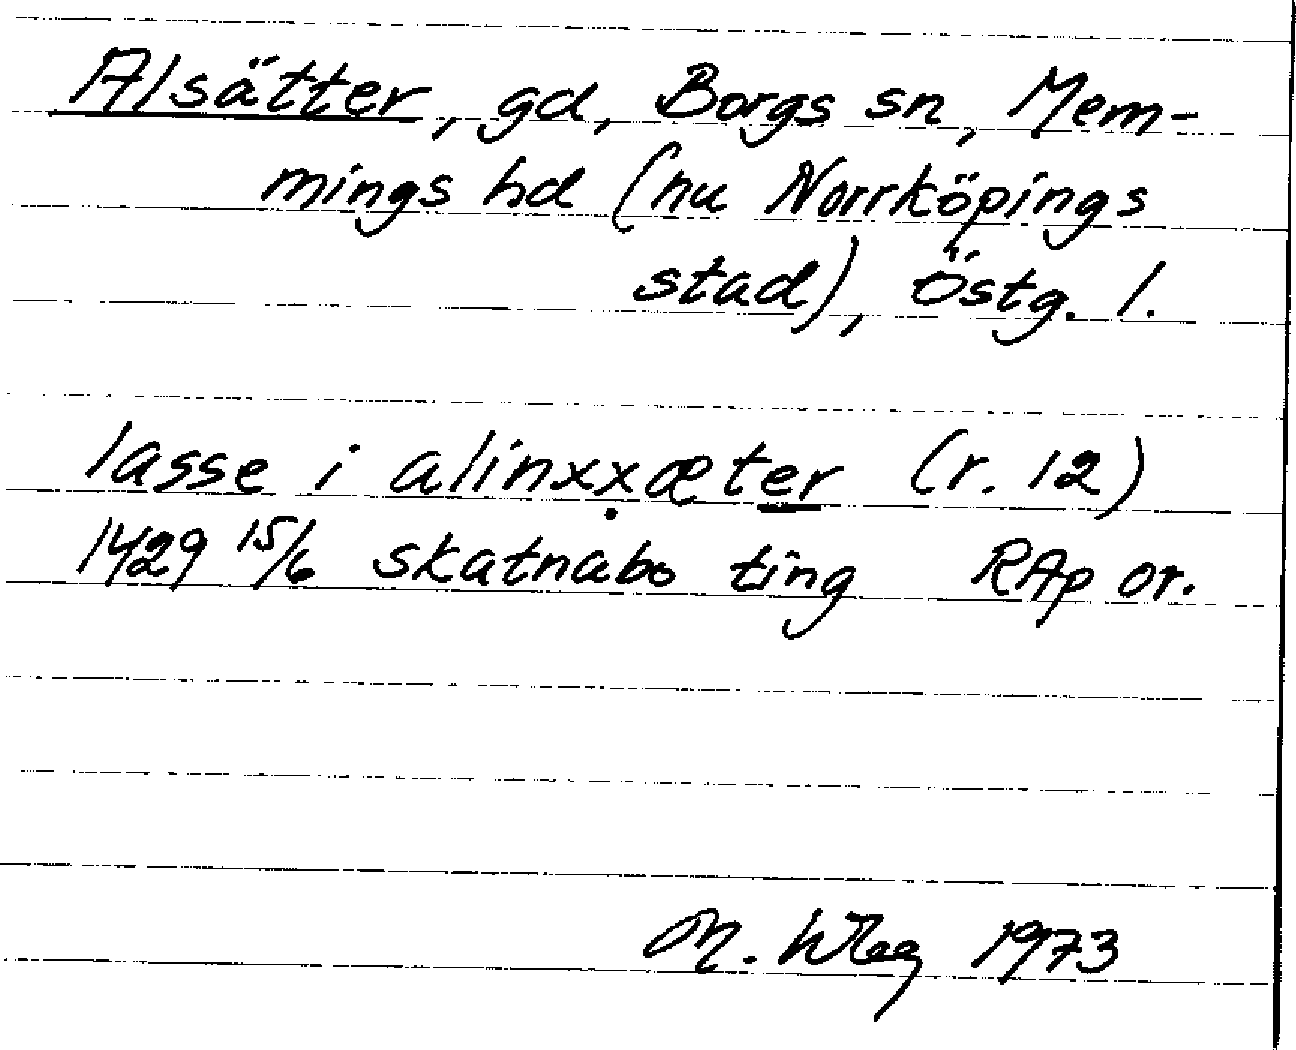 Alsätter, gd, Borgs sn, Mem-
mings hd (nu Norrköpings
stad), Östg. l.
lasse i alinxx̣æter (r. 12)
1429 15/6 skatnabo ting RAp or.
M. 1973